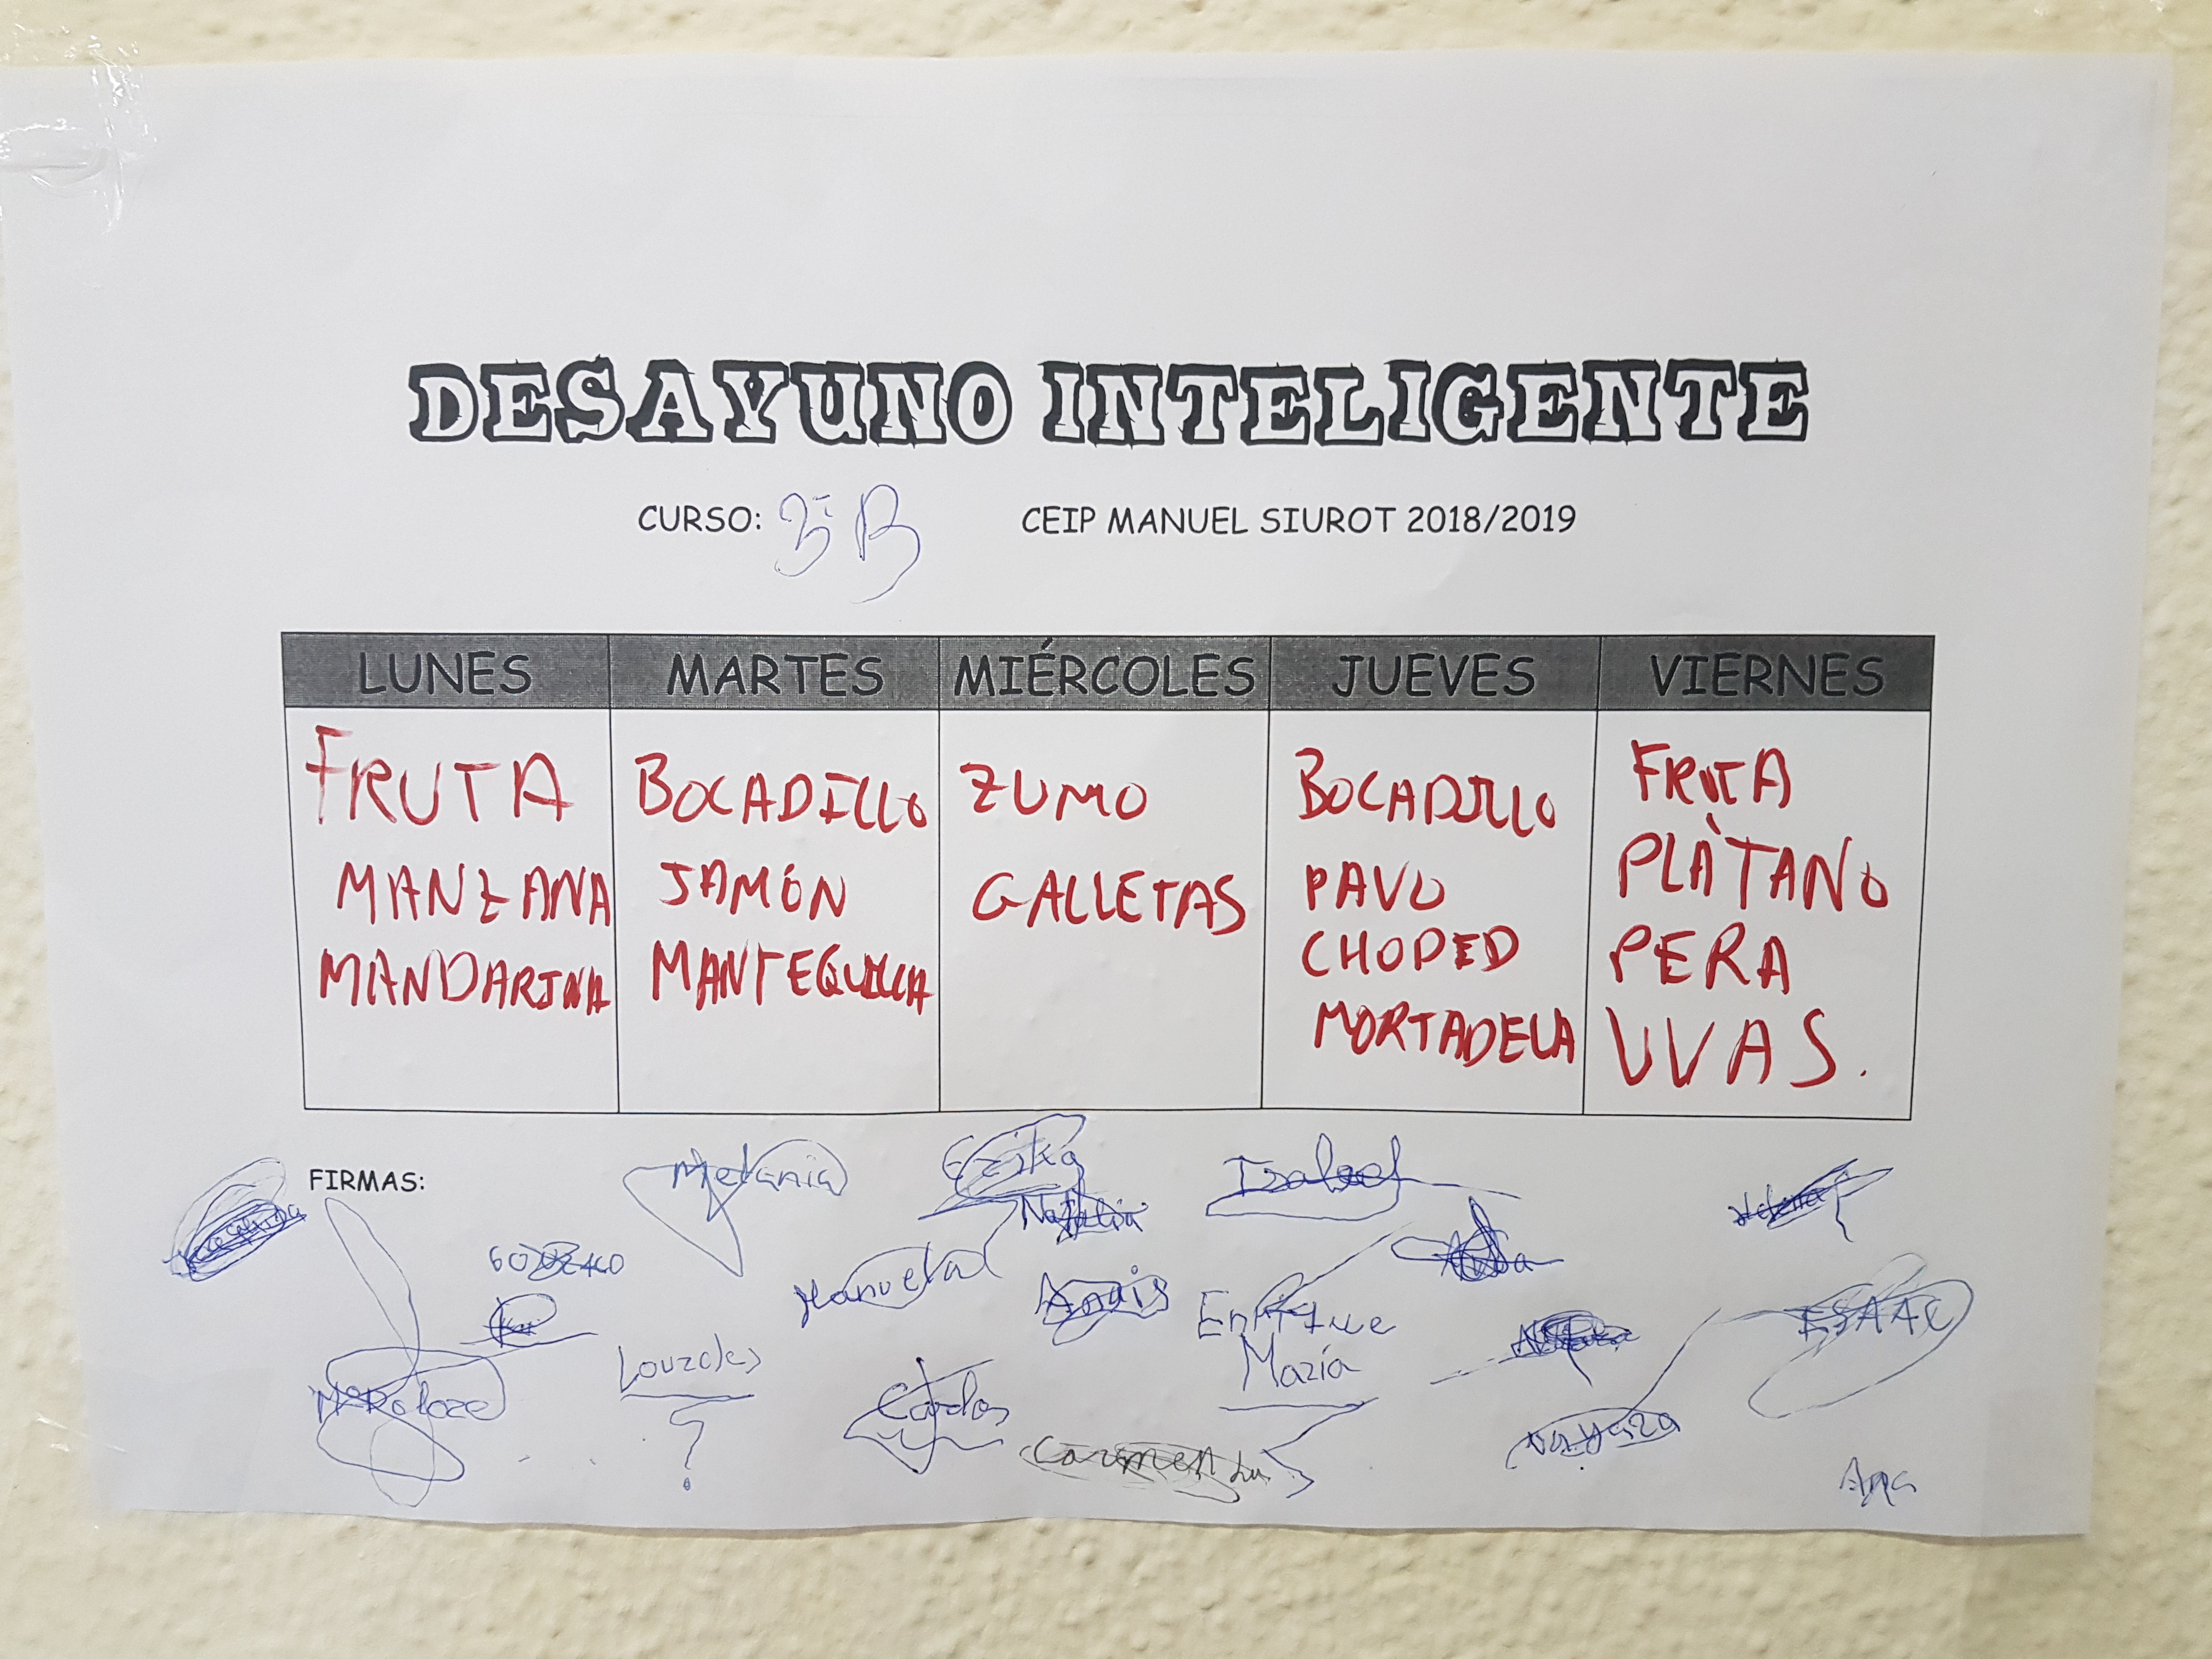 DESAYUNO INTELIGENTE
CURSO: 3º B CEIP MANUEL SIUROT 2018/2019
LUNES MARTES MIÉRCOLES JUEVES VIERNES
FRUTA
MANZANA
MANDARINA
BOCADILLO
JAMÓN
MANTEQUILLA
ZUMO
GALLETAS
BOCADILLO
PAVO
CHOPED
MORTADELA
FRUTA
PLÀTANO
PERA
UVAS.
FIRMAS:
Melania
Erika
Natalia
Isabel
Helena
Manuela
Anais
Enrique
María
Lourdes
?
Carlos
Carmen
Nayara
ESAAC
Ana